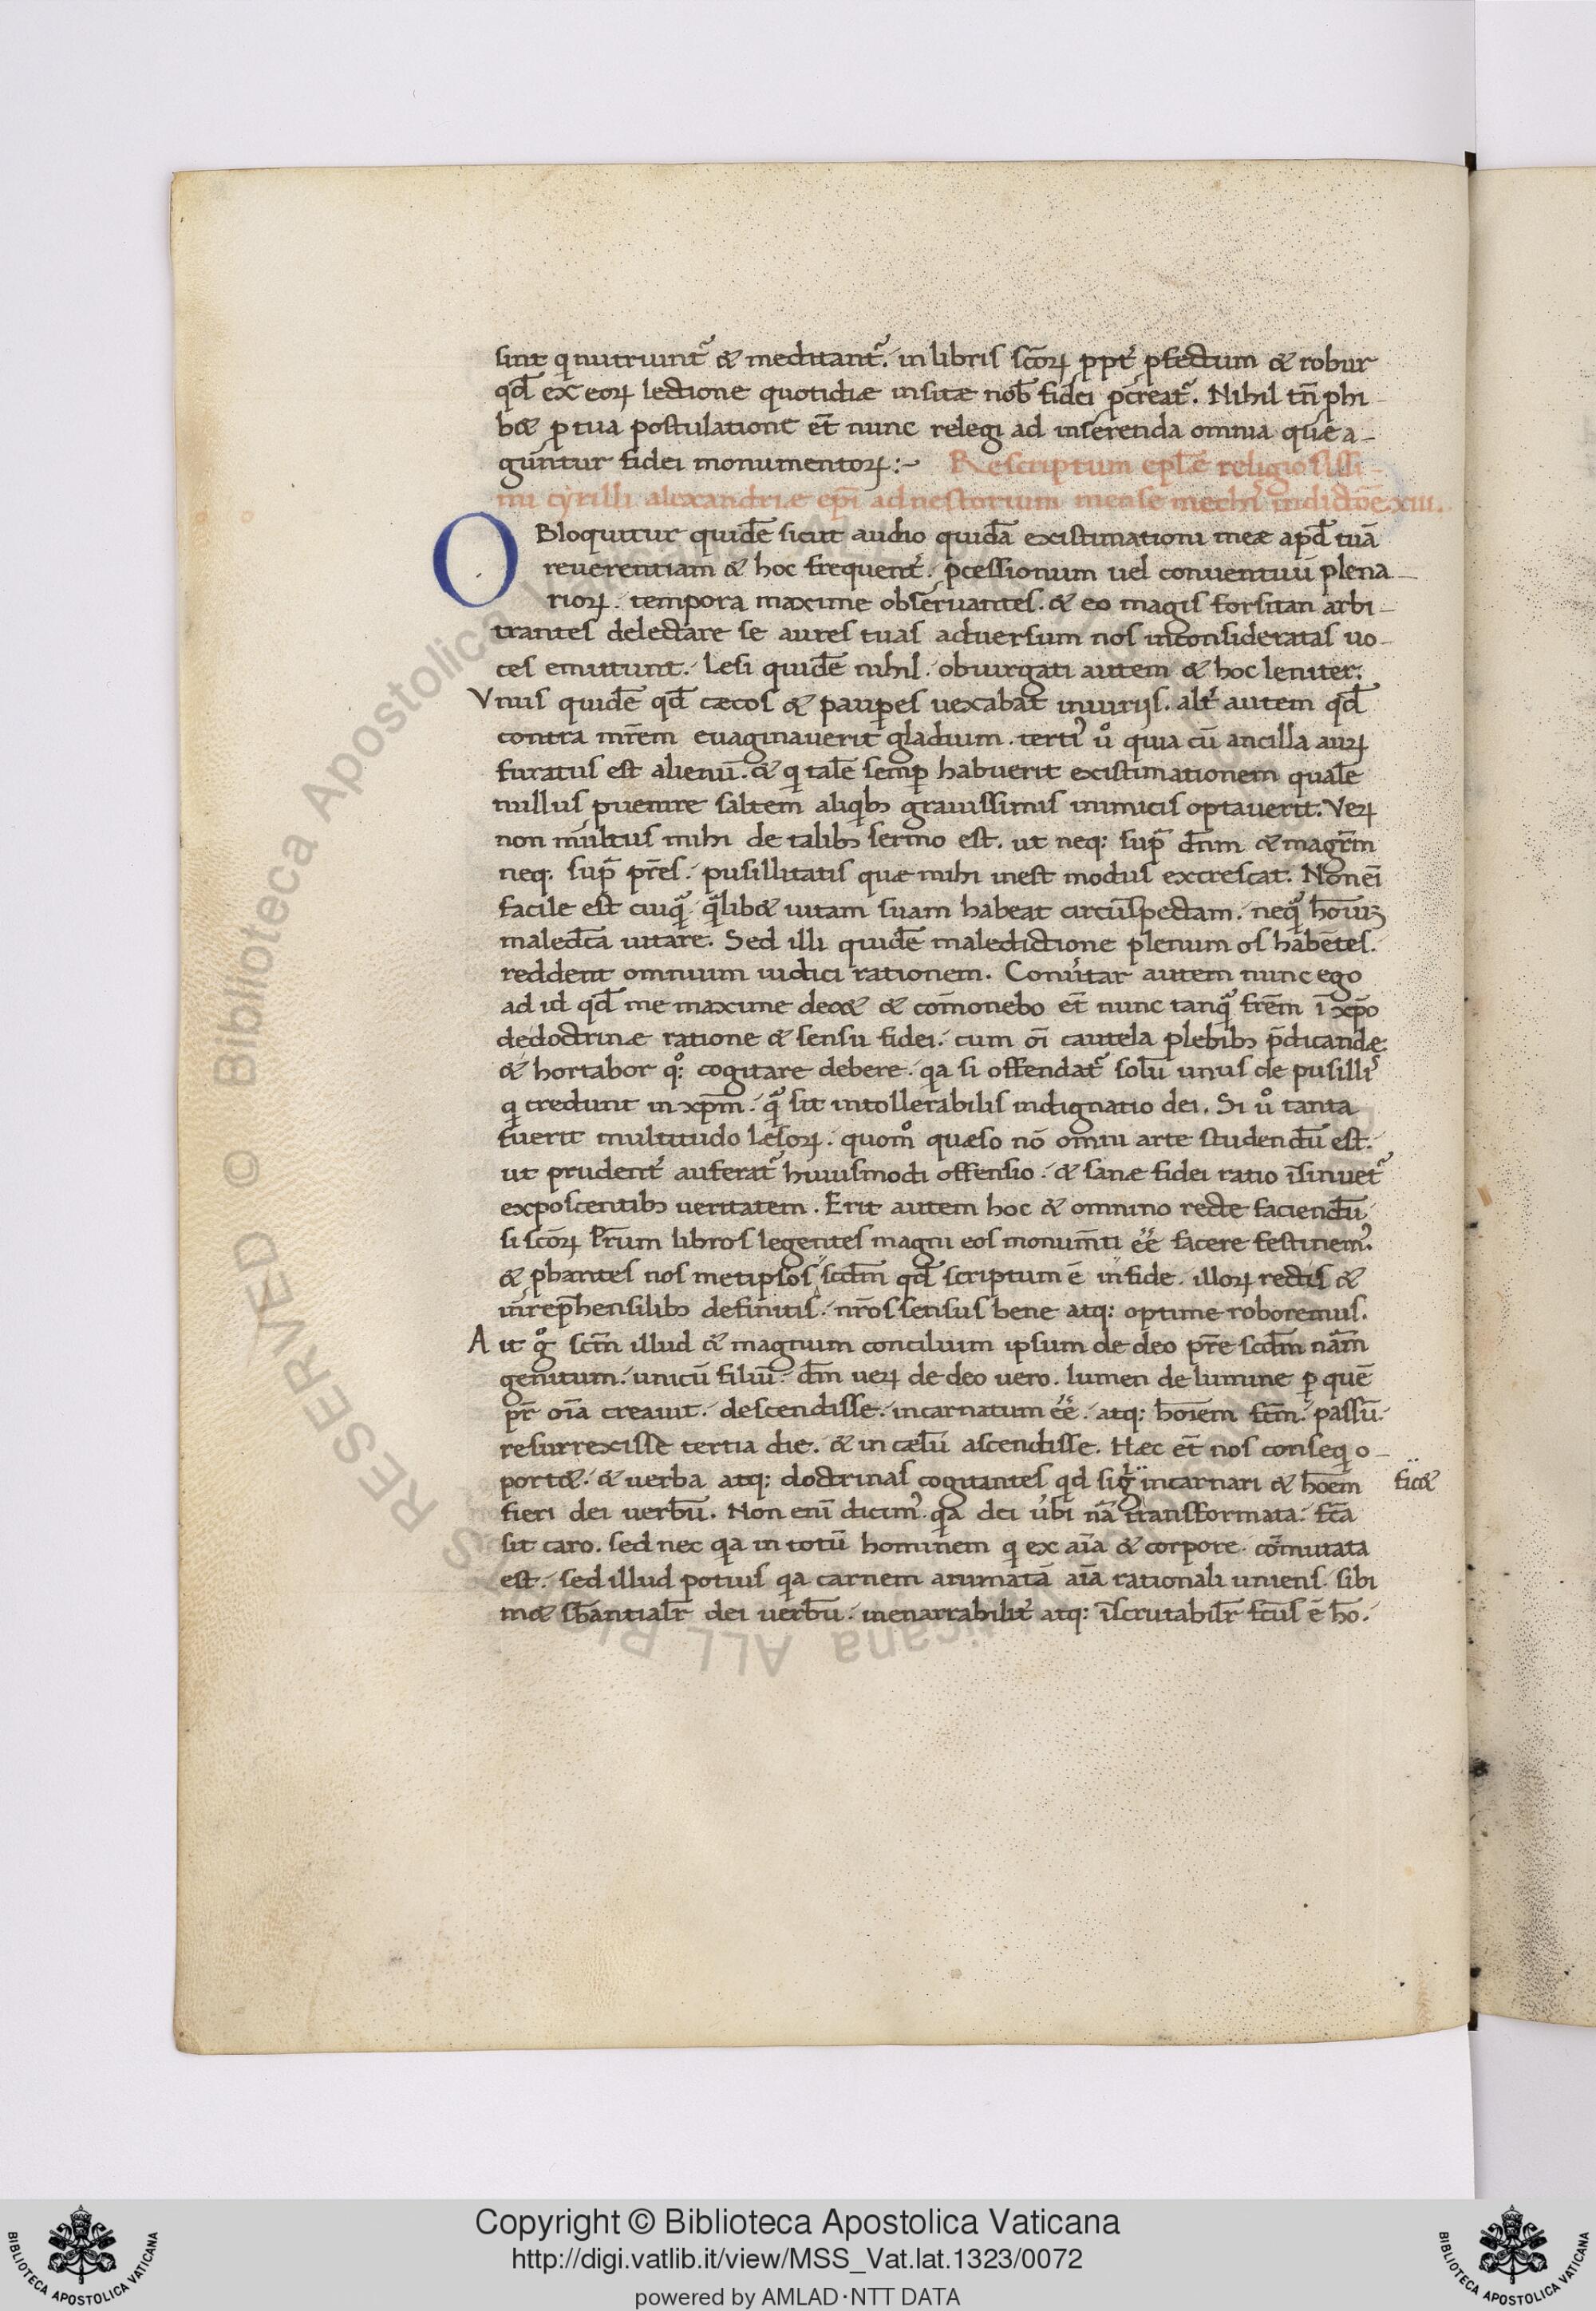 sint q nutriunt᷑ & meditant᷑. in libris sc̄oꝝ ꝓpt᷑ ꝓfectum & robur
qđ ex eoꝝ lectione quotidiæ insitæ nob̄ fidei ꝓcreat᷑. Nihil tn̄ ꝓhi-
b& ꝓ tua postulatione et̄ nunc relegi ad inserenda omnia quę a-
guntur fidei monumentoꝝ:~ Rescriptum epl̄ę religiosissi-
mi cyrilli alexandriæ epī ad nestorium mense mechir̄ indictōe xiii.
OBloquitur quidē sicut audio quidā existimationi meæ apđ tuā
reuerentiam & hoc frequent᷑. ꝓcessionum uel conuentuū plena-
rioꝝ. tempora maxime obseruantes. & eo magis forsitan arbi-
trantes delectare se aures tuas aduersum nos inconsideratas uo-
ces emittunt. Lesi quidē nihil. obiurgati autem & hoc leniter.
Vnus quidē qđ cæcos & pauꝑes uexabat iniurijs. alt᷑ autem qđ
contra mr̄em euaginauerit gladium. terti᷒ u͛o quia cū ancilla auꝝ
furatus est alienū. & q talē semꝑ habuerit existimationem qualē
nullus ꝓuenire saltem aliqib; grauissimis inimicis optauerit. Veꝝ
non multus mihi de talib; sermo est. ut neq; sup̄ dn̄m & magr̄m
neq; sup̄ pr̄es. pusillitatis quæ mihi inest modus excrescat. Non ei̅
facile est cuiq̄ q̄lib& uitam suam habeat circūspectam. neq̄ hoīuꝫ
maledc̄a uitare. Sed illi quidē maledictione plenum os habētes.
reddent omnium iudici rationem. Conu᷑tar autem nunc ego
ad id qđ me maxime dec& & com̄onebo et̄ nunc tanq̄ fr̄em ī xp̄o
de doctrinæ ratione & sensu fidei. cum oī cautela plebib; p̄dicandæ
& hortabor q͛; cogitare debere. qa si offendat᷑ solū unus de pusilli᷒
q credunt in xp̄m. q̄ sit intollerabilis indignatio dei. Si u͛o tanta
fuerit multitudo lesoꝝ. quom͛o quæso nō omni arte studendū est.
ut prudent᷑ auferat᷑ huiusmodi offensio. & sanæ fidei ratio īsinuet᷑
exposcentib; ueritatem. Erit autem hoc & omnino recte faciendū
si sc̄oꝝ Pr̄um libros legentes magni eos monumn̄ti ee̅ facere festinem᷒.
& ꝓbantes nos metipsos scdm̄ qđ scriptum ē in fide. illoꝝ rectis &
inreꝓhensilib; definitis. nr̄os sensus bene atq; optime roboremus.
Ait g͛o sc̄m illud & magnum concilium ipsum de deo pr̄e scdm̄ nām
genitum. unicū filiū. dm̄ ueꝝ de deo uero. lumen de lumine ꝑ quē
pr̄ oīa creauit. descendisse. incarnatum ee̅. atq; hoīem fc̄m. passū.
resurrexisse tertia die. & in cælū ascendisse. Hæc et̄ nos conseqi o-
port&. & uerba atq; doctrinas cogitantes qd sig incarnari & hoēm fic&
fieri dei uerbū. Non enī dicim᷒ qa dei u᷑bi nā transformata. fc̄a
sit caro. sed nec qa in totū hominem q ex aīa & corpore. com̄utata
est. sed illud potius qa carnem animatā aīa rationali uniens sibi
m& sb̄antialr̄ dei uerbū. inenarrabilit᷑ atq; īscrutabilr̄ fc̄us ē hō.
Copyright © Biblioteca Apostolica Vaticana
http://digi.vatlib.it/view/MSS_Vat.lat.1323/0072
powered by AMLAD·NTT DATA